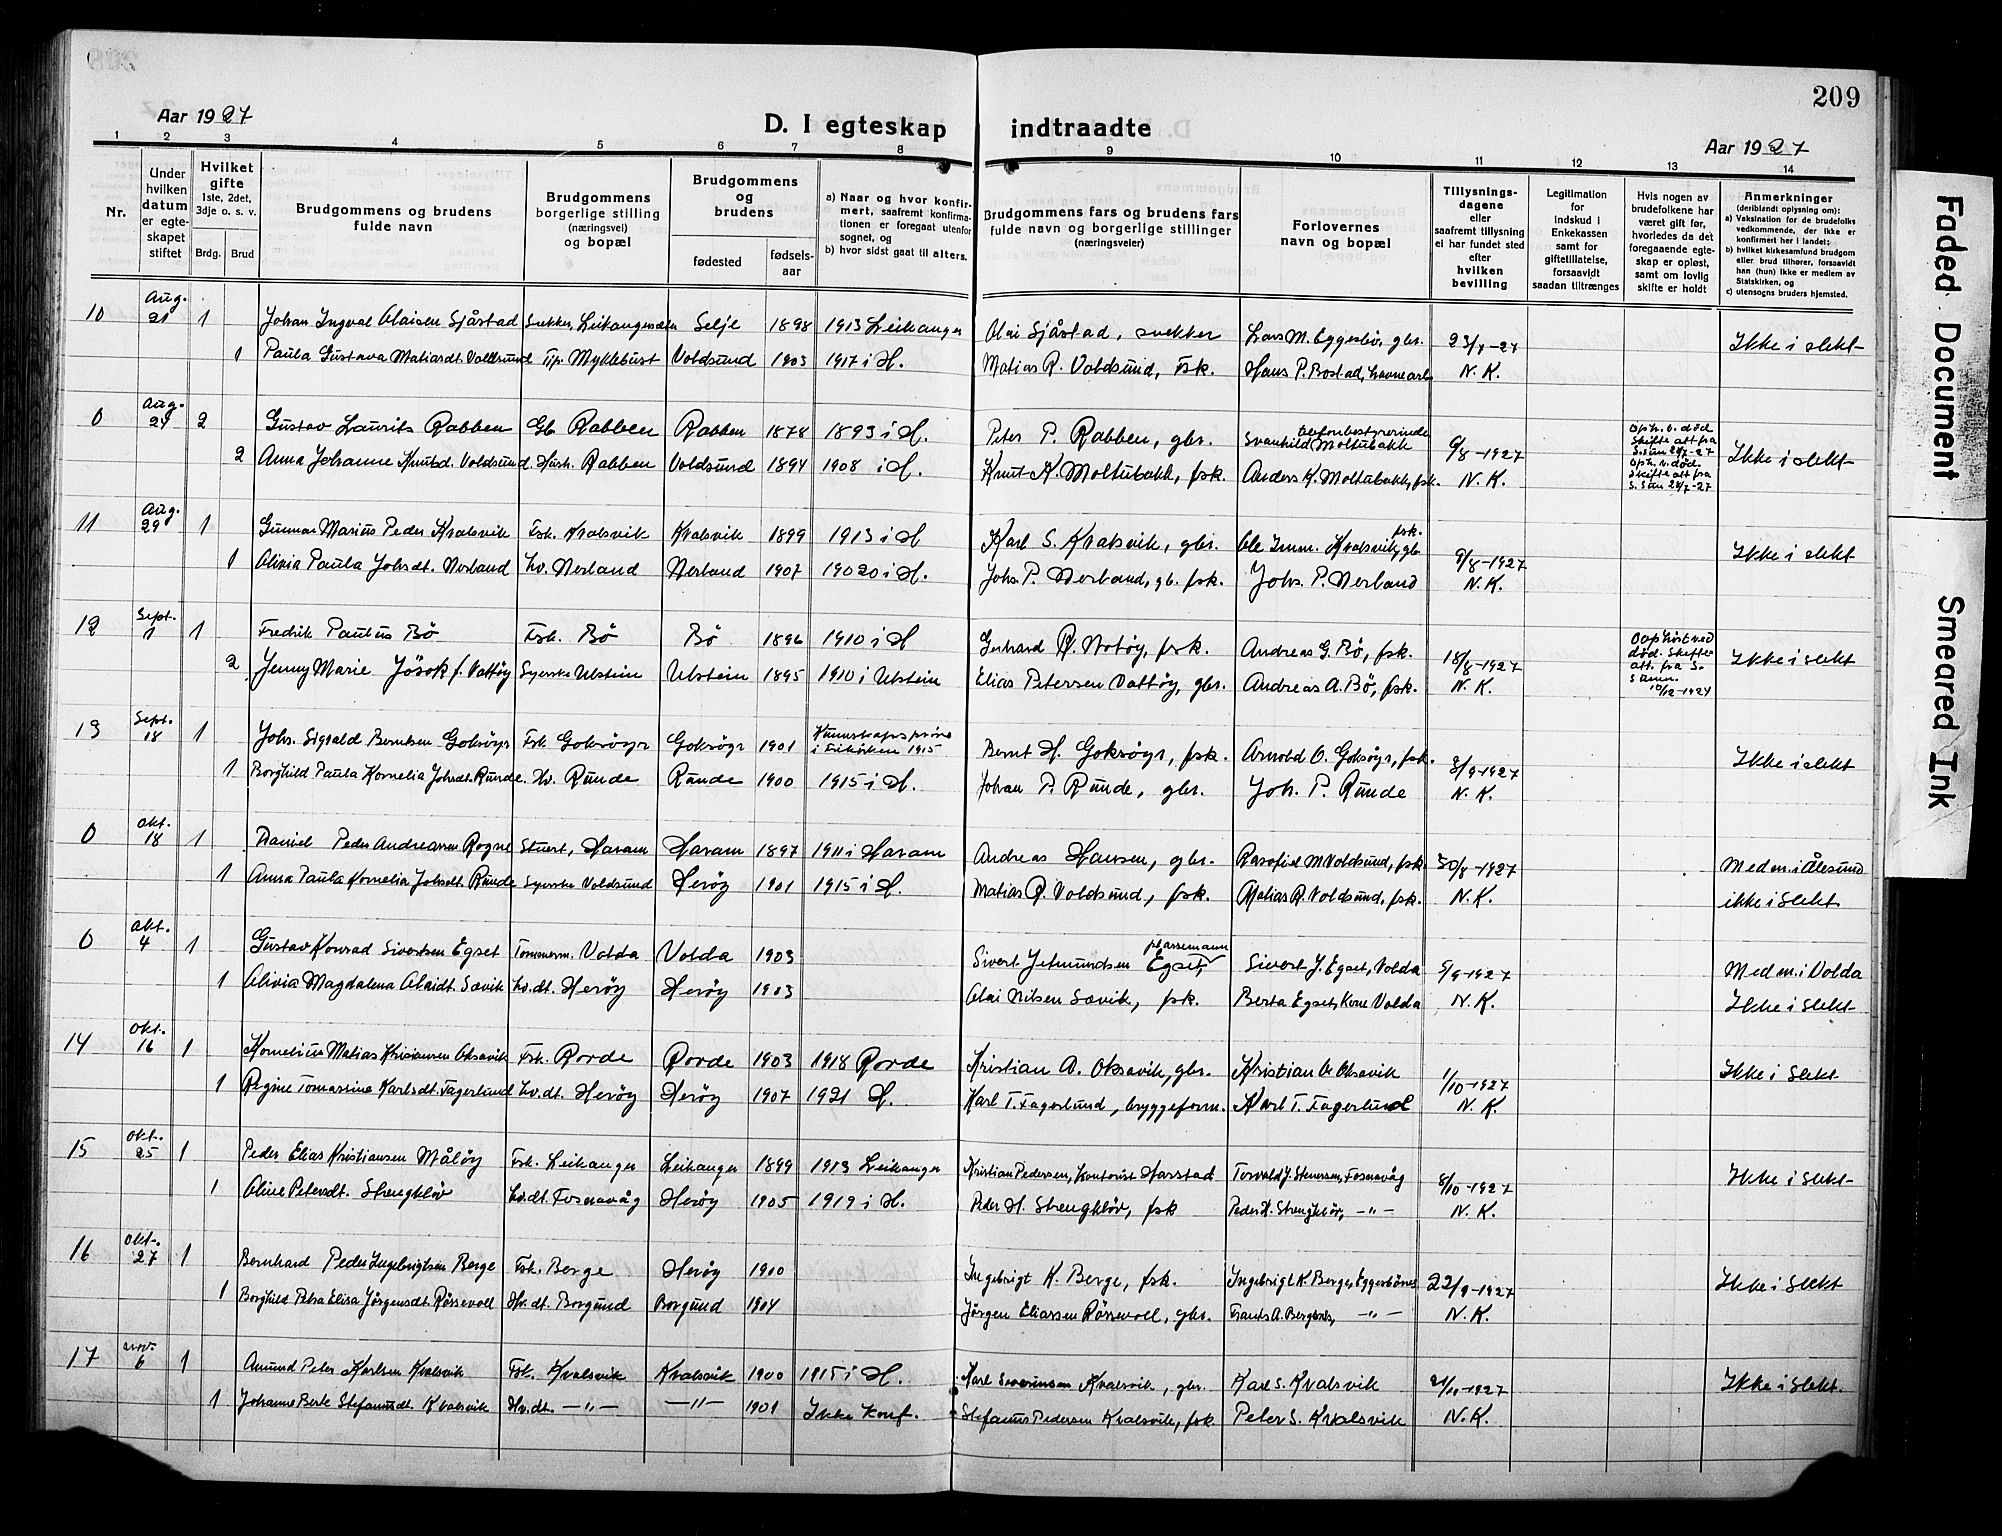 209
Aar 1927
D. I egteskap indtraadte
Aar 1927
1 2 3 4 5 6 7 8 9 10 11 12 13 14
Nr.
Under hvilken datum er egteskapet stiftet
Hvilket gifte 1ste, 2det, 3dje o. s. v.
Brdg. Brud
Brudgommens og brudens fulde navn
Brudgommens borgerlige stilling (næringsvei) og bopæl
Brudgommens og brudens
fødested
fødselsaar
a) Naar og hvor konfirmert, saafremt konfirmationen er foregaat utenfor sognet, og
b) hvor sidst gaat til alters.
Brudgommens fars og brudens fars fulde navn og borgerlige stillinger (næringsveier)
Forlovernes navn og bopæl
Tillysningsdagene eller saafremt tillysning ei har fundet sted efter hvilken bevilling
Legitimation for Indskud i Enkekassen samt for giftetillatelse, forsaavidt saadan tiltrænges
Hvis nogen av brudefolkene har været gift før, hvorledes da det foregaaende egteskap er opløst, samt om lovlig skifte er holdt
Anmerkninger (deriblandt oplysning om):
a) Vaksination for de brudefolks vedkommende, der ikke er konfirmert her i landet;
b) hvilket kirkesamfund brudgom eller brud tilhører, forsaavidt han (hun) ikke er medlem av Statskirken, og
c) utensogns bruders hjemsted.
10 Aug. 21 1 Johan Ingval Olaisen Sjåstad Snekker, Leikanger Selje 1898 1913 Leikanger Olai Sjåstad, snekker Lars M. Eggesbø, gbr. 23/7-27 Ikke i slekt
1 Paula Gustava Matiasdt. Voldsund Tp. Myklebust Voldsund 1903 1917 i H. Matias R. Voldsund, Fsk. Hans P. Bostad, havnearb. N. K.
0 Aug. 24 2 Gustav Laurits Rabben Gb. Rabben Rabben 1878 1893 i H. Peter P. Rabben, gbr. Svanhild Moltubakk telefonbestyrerinde 9/8-1927 Oph. v. død Skifte att fra S.sun 24/7-27 Ikke i slekt
2 Anna Johanne Knutsd. Voldsund Hush. Rabben Voldsund 1894 1908 i H. Knut K. Moltubakk, fsk. Anders K. Moltubakk, fsk. N. K. Oph. v. død. Skifte att fra S. Sun 24/7-27
11 Aug. 29 1 Gunnar Marius Peder Kvalsvik Fsk. Kvalsvik Kvalsvik 1899 1913 i H Karl S. Kvalsvik, gbr. Ole Imm. Kvalsvik, gb. fsk. 9/8-1927 Ikke i slekt
1 Olivia Paula Johsdt. Nerland Hv. Nerland Nerland 1907 19020 i H. Johs. P. Nerland, gb. fsk. Johs. P. Nerland N. K.
12 Sept. 1 1 Fredrik Paulus Bö Fsk. Bö Bö 1896 1910 i H Gerhard R. Notøy, fsk. Andreas G. Bö, fsk. 18/8-1927 Ophört ved död. Skifte att. fra S. Sunm. 10/12-1924 Ikke i slekt
2 Jenny Marie Jösok f. Vattöy Syerske Ulstein Ulstein 1895 1910 i Ulstein Elias Petersen Vattöy, gbr. Andreas A. Bö, fsk. N. K.
13 Sept. 18 1 Johs. Sigvald Berntsen Goksöyr Fsk. Goksöyr Goksöyr 1901 Kunnskapsprøve i Frikirken 1915 Bernt H. Goksöyr, fsk. Arnold O. Goksöyr, fsk. 3/9-1927 Ikke i slekt
1 Borghild Paula Kornelia Johsdt. Runde Hv. Runde Runde 1900 1915 i H. Johan P. Runde, gbr. Joh. P. Runde N. K.
0 Okt. 18 1 Daniel Peder Andreassen Rogne Stuert, Haram Haram 1897 1911 i Haram Andreas Hansen, gbr. Rasofied M Voldsund, fsk 30/8-1927 Med m. i Ålesund
1 Anna Paula Kornelia Johsdt. Runde Syerske Voldsund Heröy 1901 1915 i H. Matias R. Voldsund, fsk. Matias R. Voldsund, fsk. N. K. ikke i slekt
0 Okt. 4 1 Gustav Konrad Sivertsen Egset Tömmerm. Volda Volda 1903 Sivert Jetmundsen Egset, plassemann Sivert J. Egset, Volda 5/9-1927 Med m. i Volda
1 Olivia Magdalena Olaidt. Sævik Hv.dt. Heröy Heröy 1903 Olai Nilsen Sævik, fsk. Berta Egset, Kone Volda N. K. Ikke i slekt
14 Okt. 16 1 Kornelius Matias Kristiansen Oksavik Fsk. Rovde Rovde 1903 1918 Rovde Kristian O. Oksavik, gbr. Kristian O. Oksavik 1/10-1927 Ikke i slekt
1 Regine Tomassine Karlsdt. Fagerlund Hv.dt. Heröy Heröy 1907 1921 H. Karl T. Fagerlund, bryggeform. Karl T. Fagerlund N. K.
15 Okt. 25 1 Peder Elias Kristiansen Måløy Fsk. Leikanger Leikanger 1899 1913 Leikanger Kristian Pedersen, Kontorist Harstad Torvald J. Stenersen, Fosnavåg 8/10-1927 Ikke i slekt
1 Oline Petersdt. Strengkløv Hv.dt. Fosnavåg Heröy 1905 1919 i H. Peder H. Strengklöv, fsk Peder H. Strengklöv, -"- N. K.
16 Okt. 27 1 Bernhard Peder Ingebrigtsen Berge Fsk. Berge Heröy 1900 Ingebrigt K. Berge, fsk. Ingebrigt K. Berge, Eggesbönes 22/9-1927 Ikke i slekt
1 Borghild Petra Elisa Jørgensdt. Røssevoll Hv.dt. Borgund Borgund 1904 Jørgen Eliassen Røssevoll, gbr. Frants A. Bergsnes, -"- N. K.
17 nov. 6 1 Amund Peter Karlsen Kvalsvik Fsk. Kvalsvik Kvalsvik 1900 1915 i H. Karl Severinsen Kvalsvik, gbr. Karl S. Kvalsvik 2/11-1927 Ikke i slekt.
1 Johanne Berte Stefanusdt Kvalsvik Hv.dt. -"- -"- 1901 Ikke Konf. Stefanus Pedersen Kvalsvik, fsk Peter S. Kvalsvik N. K.
Faded Document
Smeared Ink